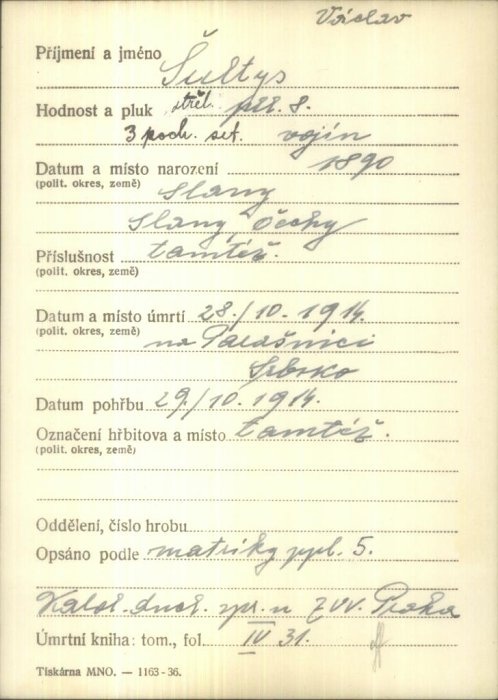 Václav
Příjmení a jméno Šultys
Hodnost a pluk střel. pll. 8.
3 poch. set. vojín
Datum a místo narození 1890
(polit. okres, země) Slaný
Slaný, Čechy
Příslušnost tamtéž.
(polit. okres, země)
Datum a místo úmrtí 28./10. 1914.
(polit. okres, země) na Parašnici
Srbsko
Datum pohřbu 29./10. 1914.
Označení hřbitova a místo tamtéž.
(polit. okres, země)
Oddělení, číslo hrobu
Opsáno podle matriky ppl. 5.
duch. spr. u ZVV. Praha
Úmrtní kniha: tom., fol. IV 31.
Tiskárna MNO. — 1163-36.